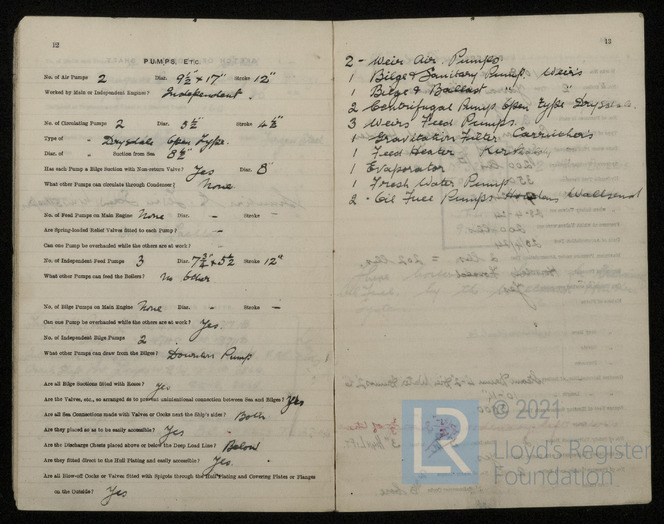 12
PUMPS, Etc.
No. of Air Pumps 2 Diar. 9½" + 17" Stroke 12"
Worked by Main or Independent Engines? Independent.
No. of Circulating Pumps 2 Diar. 5½" Stroke 4½"
Type of " Drysdale Open Type.
Diar. of " Suction from Sea 8½"
Has each Pump a Bilge Suction with Non-return Valve? Yes Diar. 8"
What other Pumps can circulate through Condenser? None
No. of Feed Pumps on Main Engine None Diar. – Stroke –
Are Spring-loaded Relief Valves fitted to each Pump? –
Can one Pump be overhauled while the others are at work? –
No. of Independent Feed Pumps 3 Diar. 7¾" + 5½ Stroke 12"
What other Pumps can feed the Boilers? No Other
No. of Bilge Pumps on Main Engine None Diar. – Stroke –
Can one Pump be overhauled while the others are at work? Yes.
No. of Independent Bilge Pumps 2
What other Pumps can draw from the Bilges? Pump
Are all Bilge Suctions fitted with Roses? Yes
Are the Valves, etc., so arranged as to prevent unintentional connection between Sea and Bilges? Yes
Are all Sea Connections made with Valves or Cocks next the Ship's sides? Both
Are they placed so as to be easily accessible? Yes
Are the Discharge Chests placed above or below the Deep Load Line? Below
Are they fitted direct to the Hull Plating and easily accessible? Yes.
Are all Blow-off Cocks or Valves fitted with Spigots through the Hull Plating and Covering Plates or Flanges
on the Outside? Yes
13
2 - Weir Air Pumps
1 Bilge & Sanitary Pump. Weir's
1 Bilge & Ballast " "
2 Centrifugal Pumps Open Type Drysdale.
3 Weirs Feed Pumps.
1 Gravitation Filter Carruthers
1 Feed Heater
1 Evaporator
1 Fresh Water Pump
2 - Oil Fuel Pumps Wallsend
LR
© 2021
Lloyd's Register
Foundation